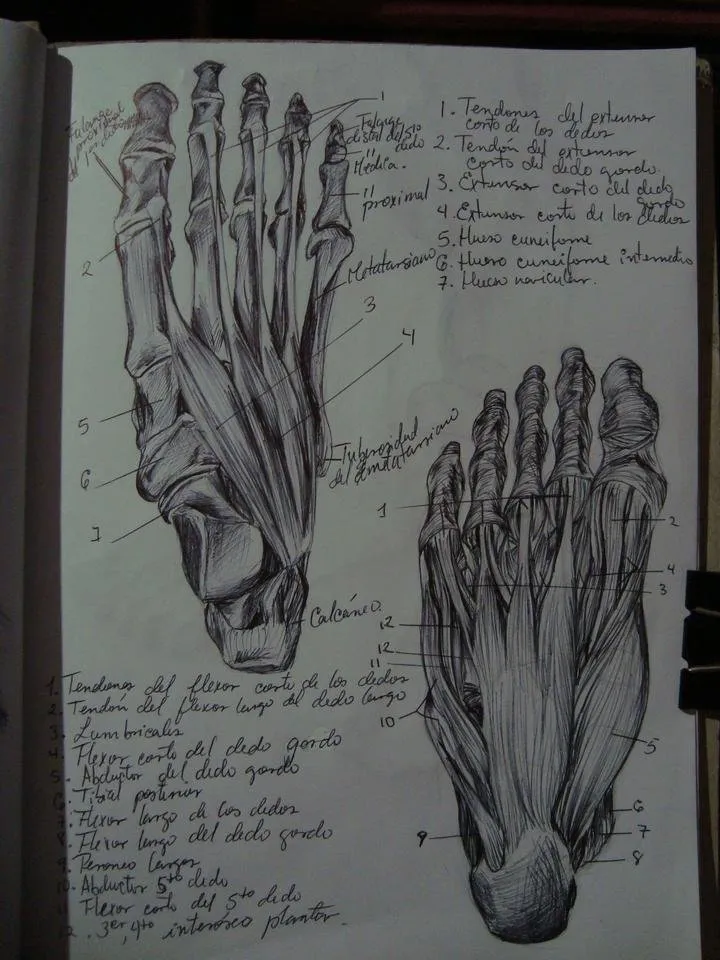 1
Falange
distal del 5to
dedo
" Médica.
" proximal
2
Metatarsiano
3
4
5
6
7
Tuberosidad
del 5 metatarsiano
Calcáneo.
1. Tendones del extensor
corto de los dedos
2. Tendón del extensor
corto del dedo gordo.
3. Extensor corto del dedo
gordo
4. Extensor corto de los dedos
5. Hueso cuneiforme
6. Hueso cuneiforme intermedio
7. Hueso navicular.
1
2
4
3
12
12
11
10
5
6
7
8
9
1. Tendones del flexor corto de los dedos
2. Tendón del flexor largo del dedo largo
3. Lumbricales
4. Flexor corto del dedo gordo
5. Abductor del dedo gordo
6. Tibial posterior
7. Flexor largo de los dedos
8. Flexor largo del dedo gordo
9. Peroneo largo
10. Abductor 5to dedo
11 Flexor corto del 5to dedo
12. 3er, 4to interóseo plantar.